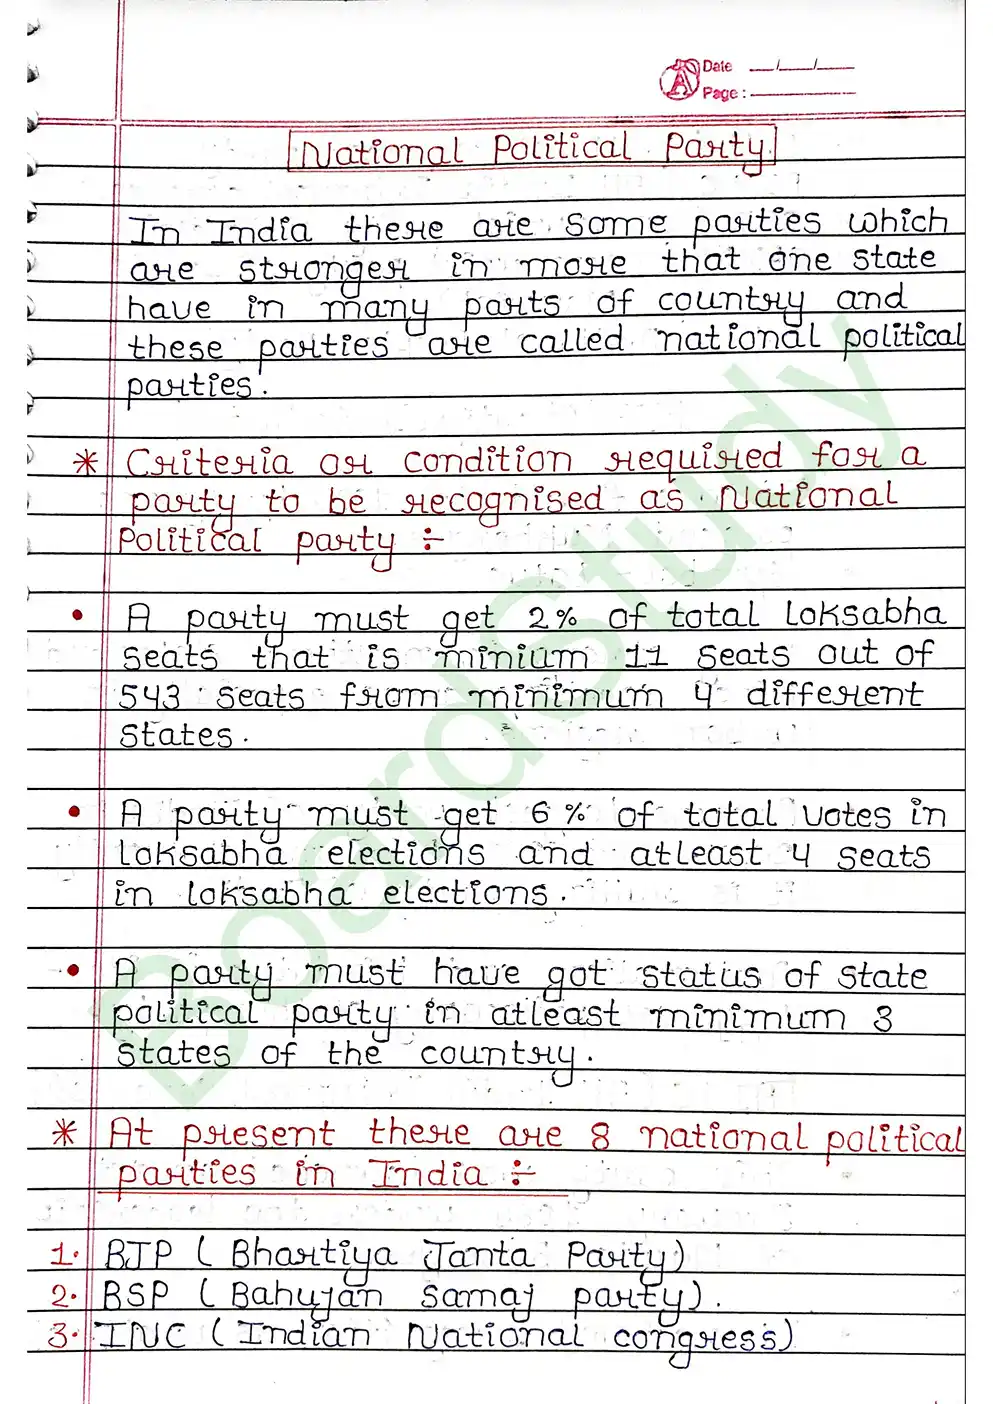 Date __/__/__
Page :
National Political Party
In India there are some parties which
are stronger in more that one state
have in many parts of country and
these parties are called national political
parties.
* Criteria or condition required for a
party to be recognised as National
Political party ÷
• A party must get 2% of total loksabha
seats that is minium 11 seats out of
543 seats from minimum 4 different
states.
• A party must get 6% of total votes in
loksabha elections and atleast 4 seats
in loksabha elections.
• A party must have got status of state
political party in atleast minimum 3
states of the country.
* At present there are 8 national political
parties in India ÷
1. BJP (Bhartiya Janta Party)
2. BSP (Bahujan samaj party).
3. INC (Indian National congress)
BoardStudy